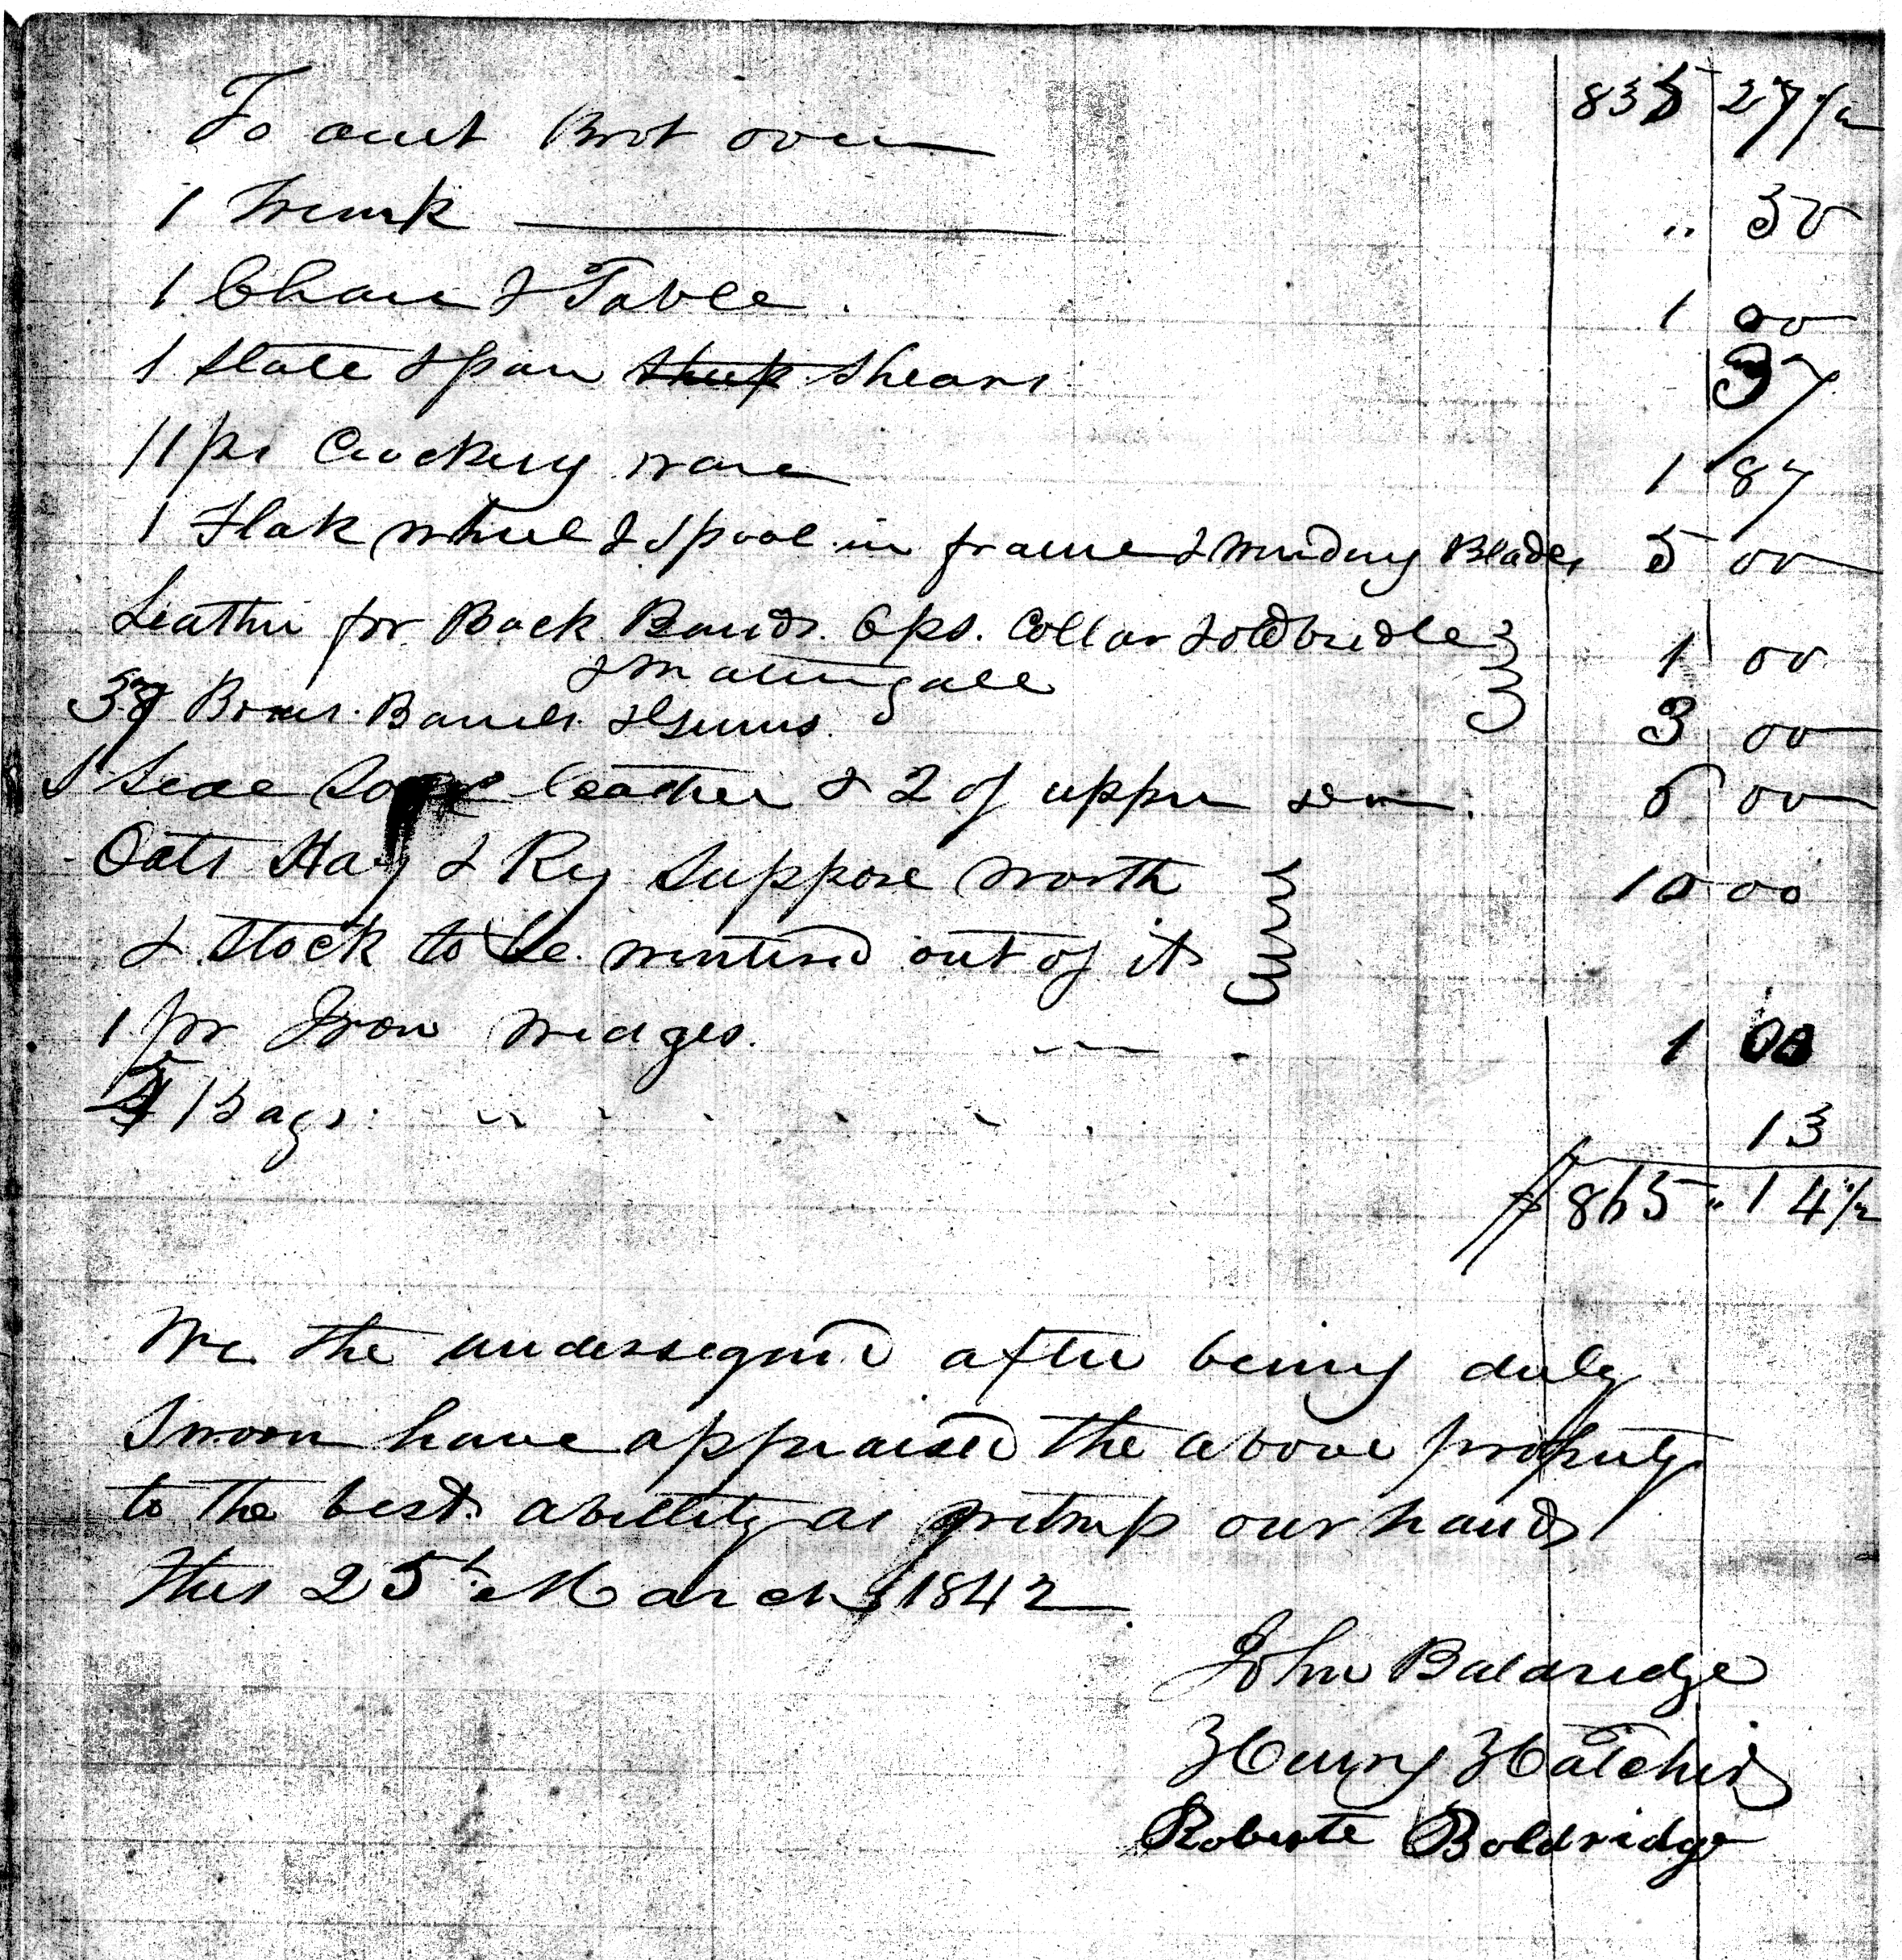 To amt Brot over 835 27 1/2
1 Trunk " 50
1 Chair & Table . 1 00
1 Slate & pair Sheep Shears 37
11 ps Crockery ware 1 87
1 Flak wheel & Spool in frame & Winding Blades 5 00
Leather for Back Bands. 6 ps. Collar & old bridle 1 00
& Martingale
Boxes. Barrels. & Gums. 3 00
1 Side Sole leather & 2 of upper do . 6 00
Oats Hay & Ry Suppose worth 10 00
& Stock to be wintered out of it
1 pr Iron Wedges. 1 00
Bags 13
$ 865 " 14 1/2
We the undersigned after being duly
Sworn have appraised the above property
to the best abillity as witness our hands
this 25th March 1842
John Baldridge
Henry Hatcher
Roberte Boldridge